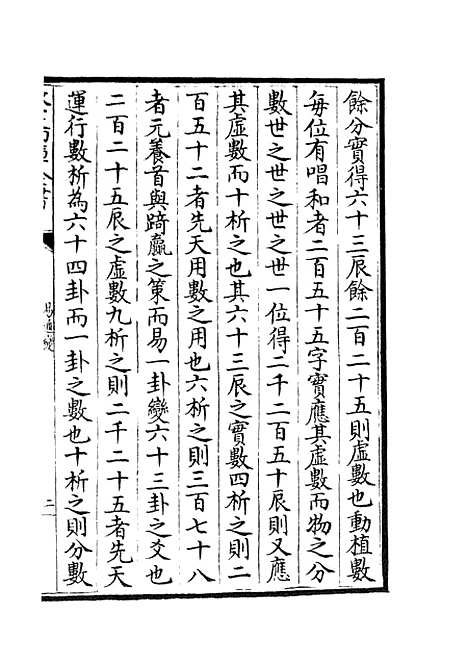 餘分實得六十三辰餘二百二十五則虛數也動植數
每位有唱和者二百五十五字實應其虛數而物之分
數世之世之世之世一位得二千二百五十辰則又應
其虛數而十析之也其六十三辰之實數四析之則二
百五十二者先天用數之用也六析之則三百七十八
者元養首與踦羸之策而易一卦變六十三卦之爻也
二百二十五辰之虛數九析之則二千二十五者先天
運行數析為六十四卦而一卦之數也十析之則分數
二